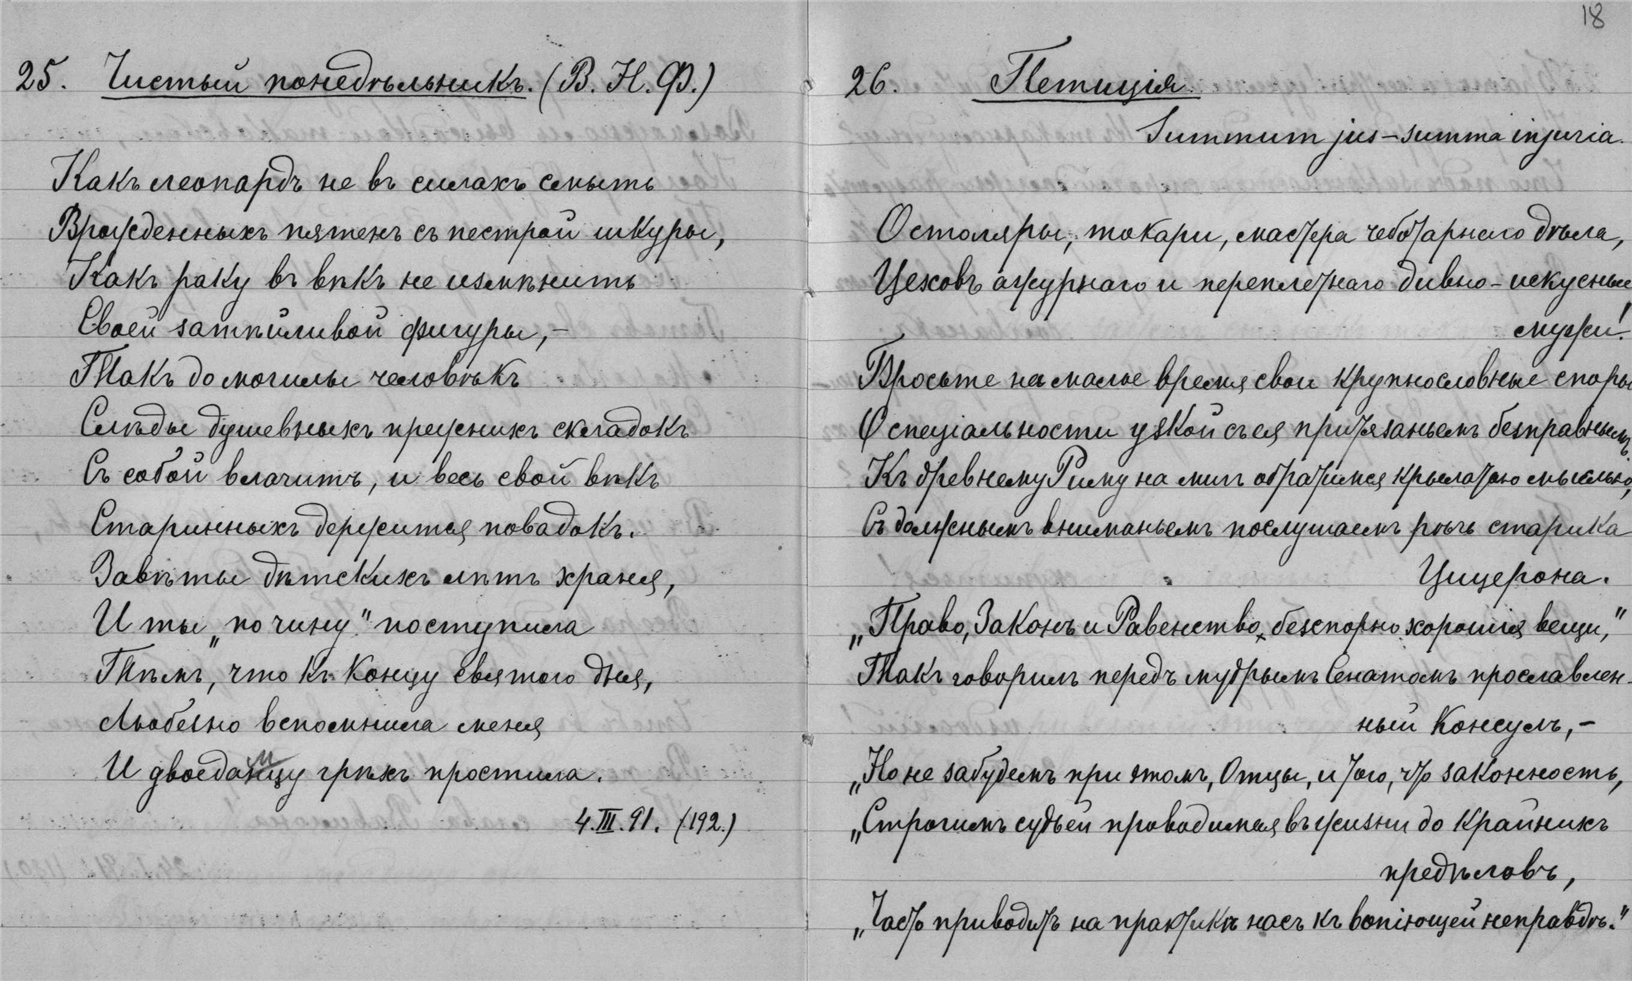 25. Чистый понедѣльникъ. (В. Н. Ф.)
Какъ леопардъ не въ силахъ смыть
Врожденныхъ пятенъ съ пестрой шкуры,
Какъ раку въ вѣкъ не измѣнить
Своей затѣйливой фигуры, –
Такъ до могилы человѣкъ
Слѣды душевныхъ прежнихъ складокъ
Съ собой влачитъ, и весь свой вѣкъ
Старинныхъ держится повадокъ.
Завѣты дѣтскихъ лѣтъ храня,
И ты „по чину" поступила
Тѣмъ, что къ концу святого дня,
Любезно вспомнила меня
И двоеданцу грѣхъ простила.
4.III.91. (192.)
18
26. Петиція.
Summum jus – summa injuria.
О столяры, токари, мастера чеботарнаго дѣла,
Цеховъ ажурнаго и переплетнаго дивно-искусные
мужи!
Бросьте на малое время свои крупнословные споры
О спеціальности узкой съ ея притязаньемъ безправнымъ.
Къ древнему Риму на мигъ обратимся крылатою мыслью,
Съ должнымъ вниманьемъ послушаемъ рѣчь старика
Цицерона.
„Право, Законъ и Равенство, безспорно хорошія вещи,"
Такъ говорилъ передъ мудрымъ Сенатомъ прославлен-
ный Консулъ, –
„Но не забудемъ при этомъ, Отцы, и того, что законность,
„Строгимъ судьей проводимая въ жизни до крайнихъ
предѣловъ,
„Часто приводитъ на практикѣ насъ къ вопіющей неправдѣ."